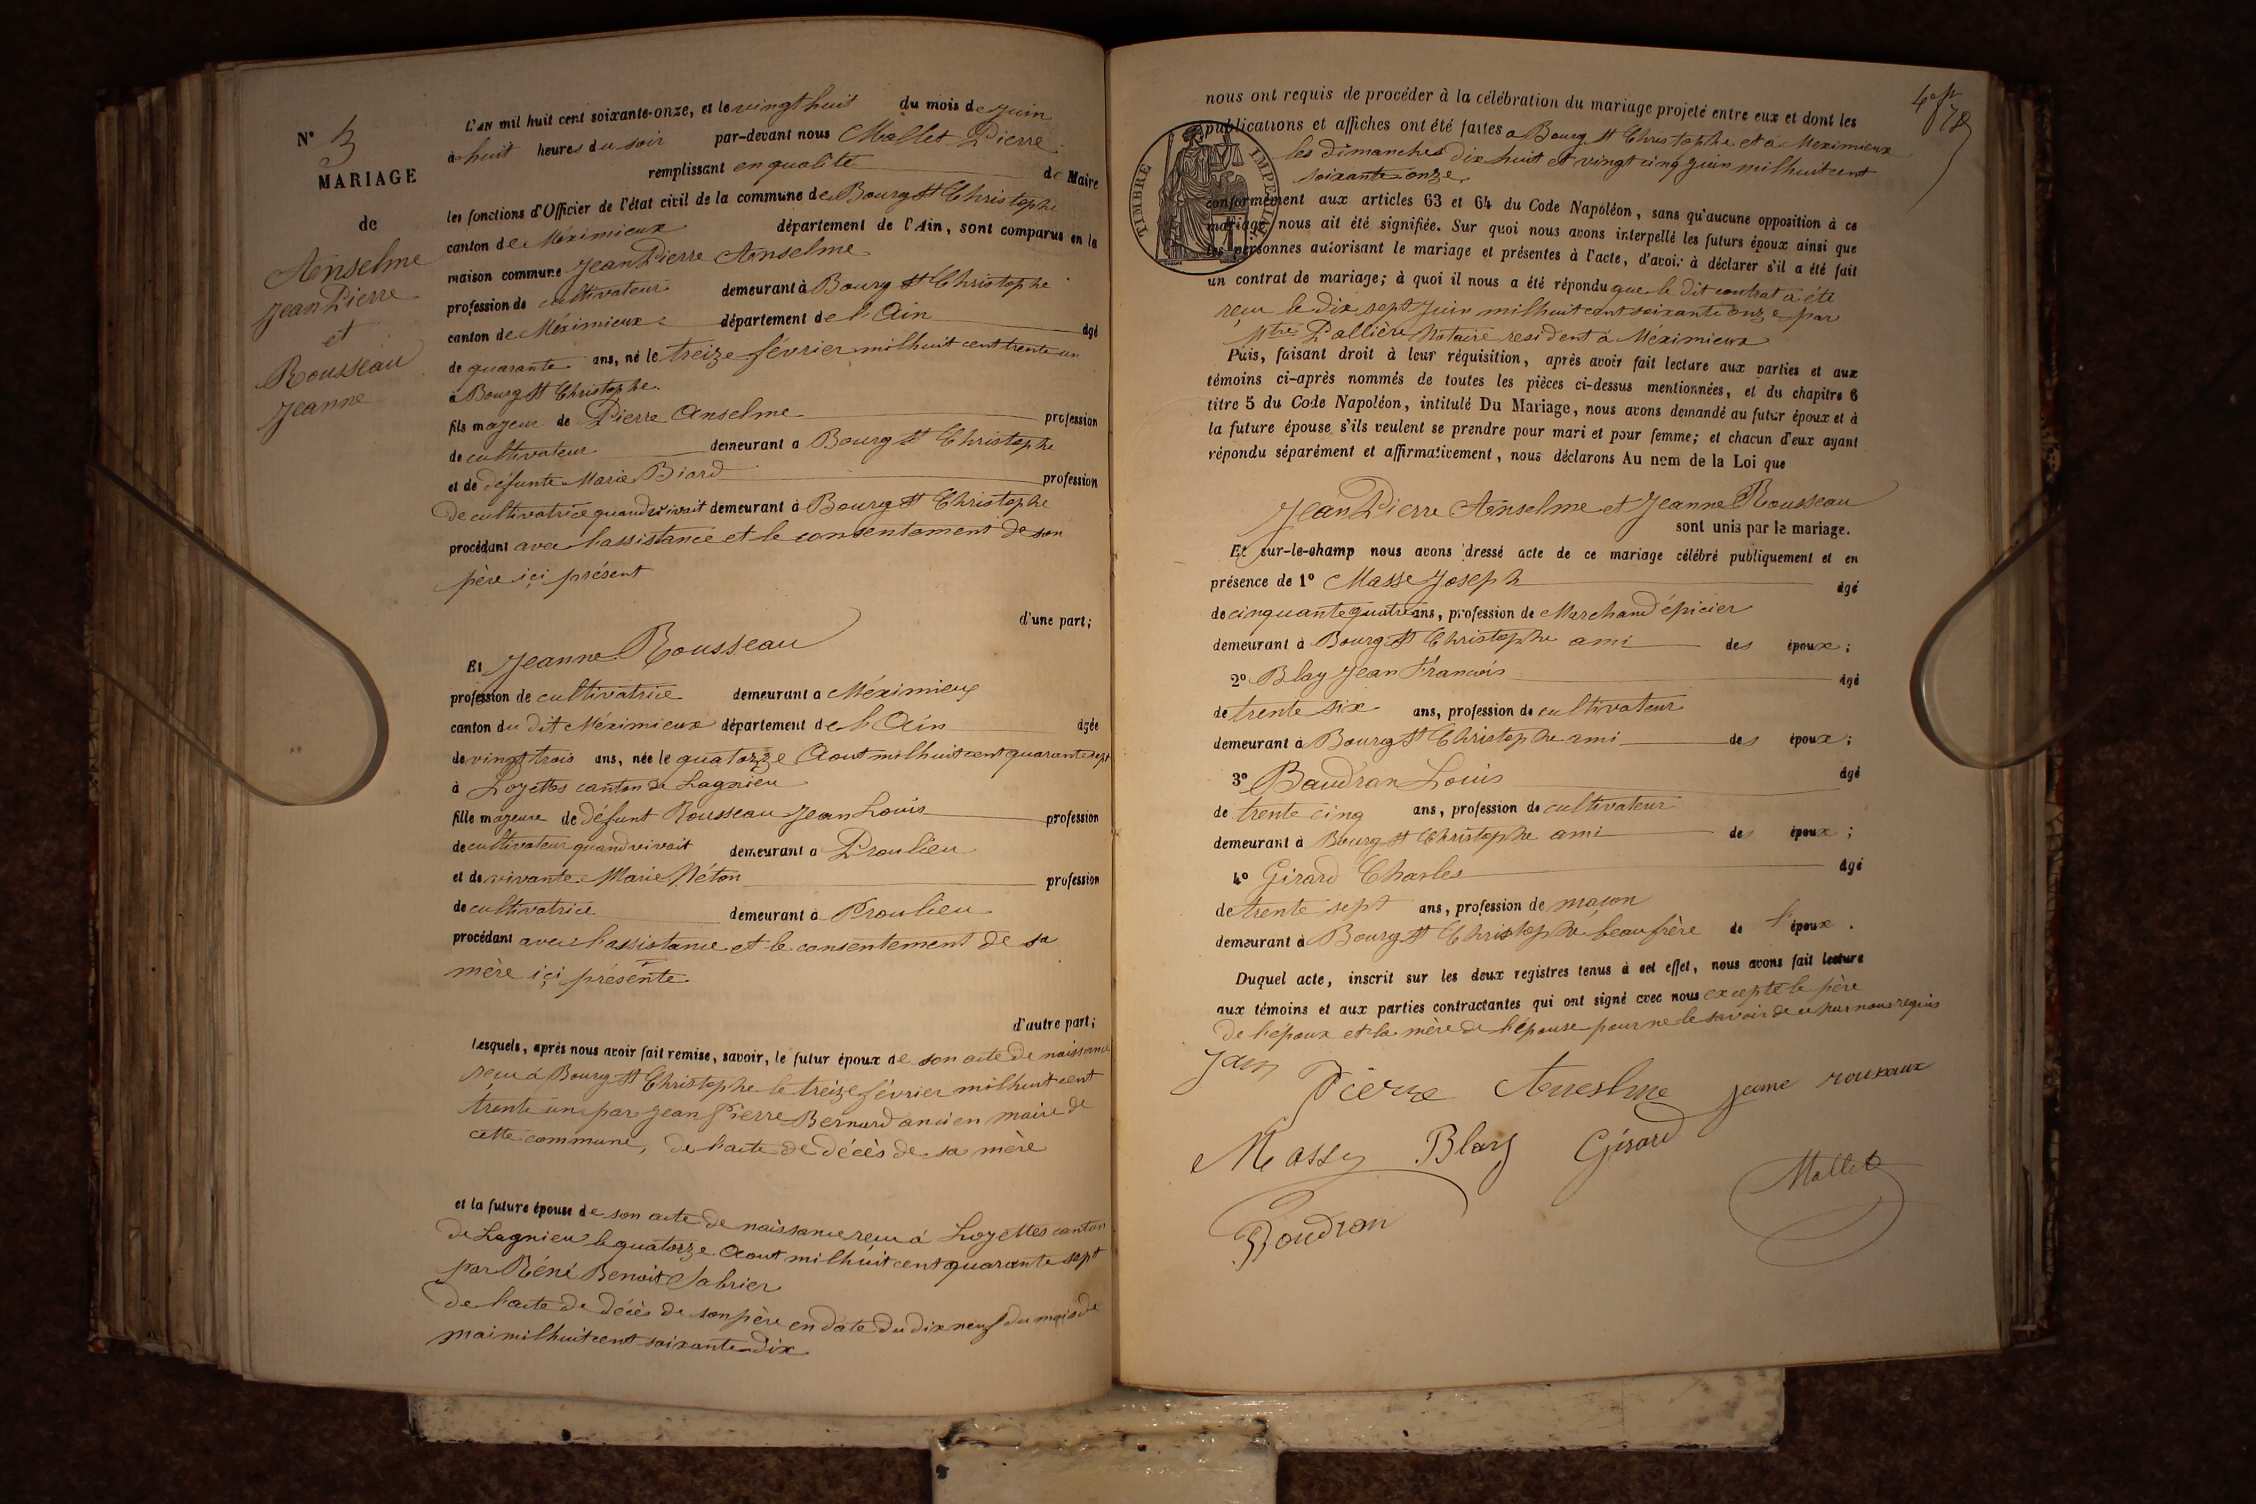 N° 3
MARIAGE
de
Anselme
Jean Pierre
et
Rousseau
Jeanne
L'AN mil huit cent soixante-onze, et le vingt huit du mois de Juin
à huit heures du soir par-devant nous Mallet Pierre
remplissant en qualité de Maire
les fonctions d'Officier de l'état civil de la commune de Bourg St Christophe
canton de Méximieux département de l'Ain, sont comparus en la
maison commune Jean Pierre Anselme
profession de cultivateur demeurant à Bourg St Christophe
canton de Méximieux département de l'Ain âgé
de quarante ans, né le treize février mil huit cent trente un
à Bourg St Christophe.
fils majeur de Pierre Anselme profession
de cultivateur demeurant à Bourg St Christophe
et de défunte Marie Biard profession
de cultivatrice quand vivait demeurant à Bourg St Christophe
procédant avec l'assistance et le consentement de son
père içi présent
d'une part;
Et Jeanne Rousseau
profession de cultivatrice demeurant à Méximieux
canton du dit Méximieux département de l'Ain âgée
de vingt trois ans, née le quatorze Aout mil huit cent quarante sept
à Loyettes canton de Lagnieu
fille majeure de défunt Rousseau Jean Louis profession
de cultivateur quand vivait demeurant à Proulieu
et de vivante Marie Néton profession
de cultivatrice demeurant à Proulieu
procédant avec l'assistance et le consentement de sa
mère içi présente
d'autre part;
Lesquels, après nous avoir fait remise, savoir, le futur époux de son acte de naissance
reçu à Bourg St Christophe le treize février mil huit cent
trente un par Jean Pierre Bernard ancien maire de
cette commune, de l'acte de décès de sa mère
et la future épouse de son acte de naissance reçu à Loyettes canton
de Lagnieu le quatorze Aout mil huit cent quarante sept
par Réné Benoit Sabrier
de l'acte de décès de son père en date du dix neuf du mois de
mai mil huit cent soixante dix
78
nous ont requis de procéder à la célébration du mariage projeté entre eux et dont les
publications et affiches ont été faites a Bourg St Christophe et à Meximieux
les dimanches dix huit et vingt cinq juin mil huit cent
soixante onze.
TIMBRE IMPERIAL
conformément aux articles 63 et 64 du Code Napoléon, sans qu'aucune opposition à ce
mariage nous ait été signifiée. Sur quoi nous avons interpellé les futurs époux ainsi que
les personnes autorisant le mariage et présentes à l'acte, d'avoir à déclarer s'il a été fait
un contrat de mariage; à quoi il nous a été répondu que le dit contrat a été
reçu le dix sept Juin mil huit cent soixante onze par
Mtre Pallière Notaire resident à Méximieux
Puis, faisant droit à leur réquisition, après avoir fait lecture aux parties et aux
témoins ci-après nommés de toutes les pièces ci-dessus mentionnées, et du chapitre 6
titre 5 du Code Napoléon, intitulé Du Mariage, nous avons demandé au futur époux et à
la future épouse s'ils veulent se prendre pour mari et pour femme; et chacun d'eux ayant
répondu séparément et affirmativement, nous déclarons Au nom de la Loi que
Jean Pierre Anselme et Jeanne Rousseau
sont unis par le mariage.
Et sur-le-champ nous avons dressé acte de ce mariage célébré publiquement et en
présence de 1° Masse Joseph âgé
de cinquante quatre ans, profession de Marchand épicier
demeurant à Bourg St Christophe ami des époux;
2° Blay Jean François âgé
de trente six ans, profession de cultivateur
demeurant à Bourg St Christophe ami des époux;
3° Baudran Louis âgé
de trente cinq ans, profession de cultivateur
demeurant à Bourg St Christophe ami des époux;
4° Girard Charles âgé
de trente sept ans, profession de maçon
demeurant à Bourg St Christophe beau frère de l'époux.
Duquel acte, inscrit sur les deux registres tenus à cet effet, nous avons fait lecture
aux témoins et aux parties contractantes qui ont signé avec nous excepté le père
de l'époux et la mère de l'épouse pour ne le savoir de ce par nous requis
Jean Pierre Anselme jeanne rousaux
Massy Blay Girard
Mallet
Boudran